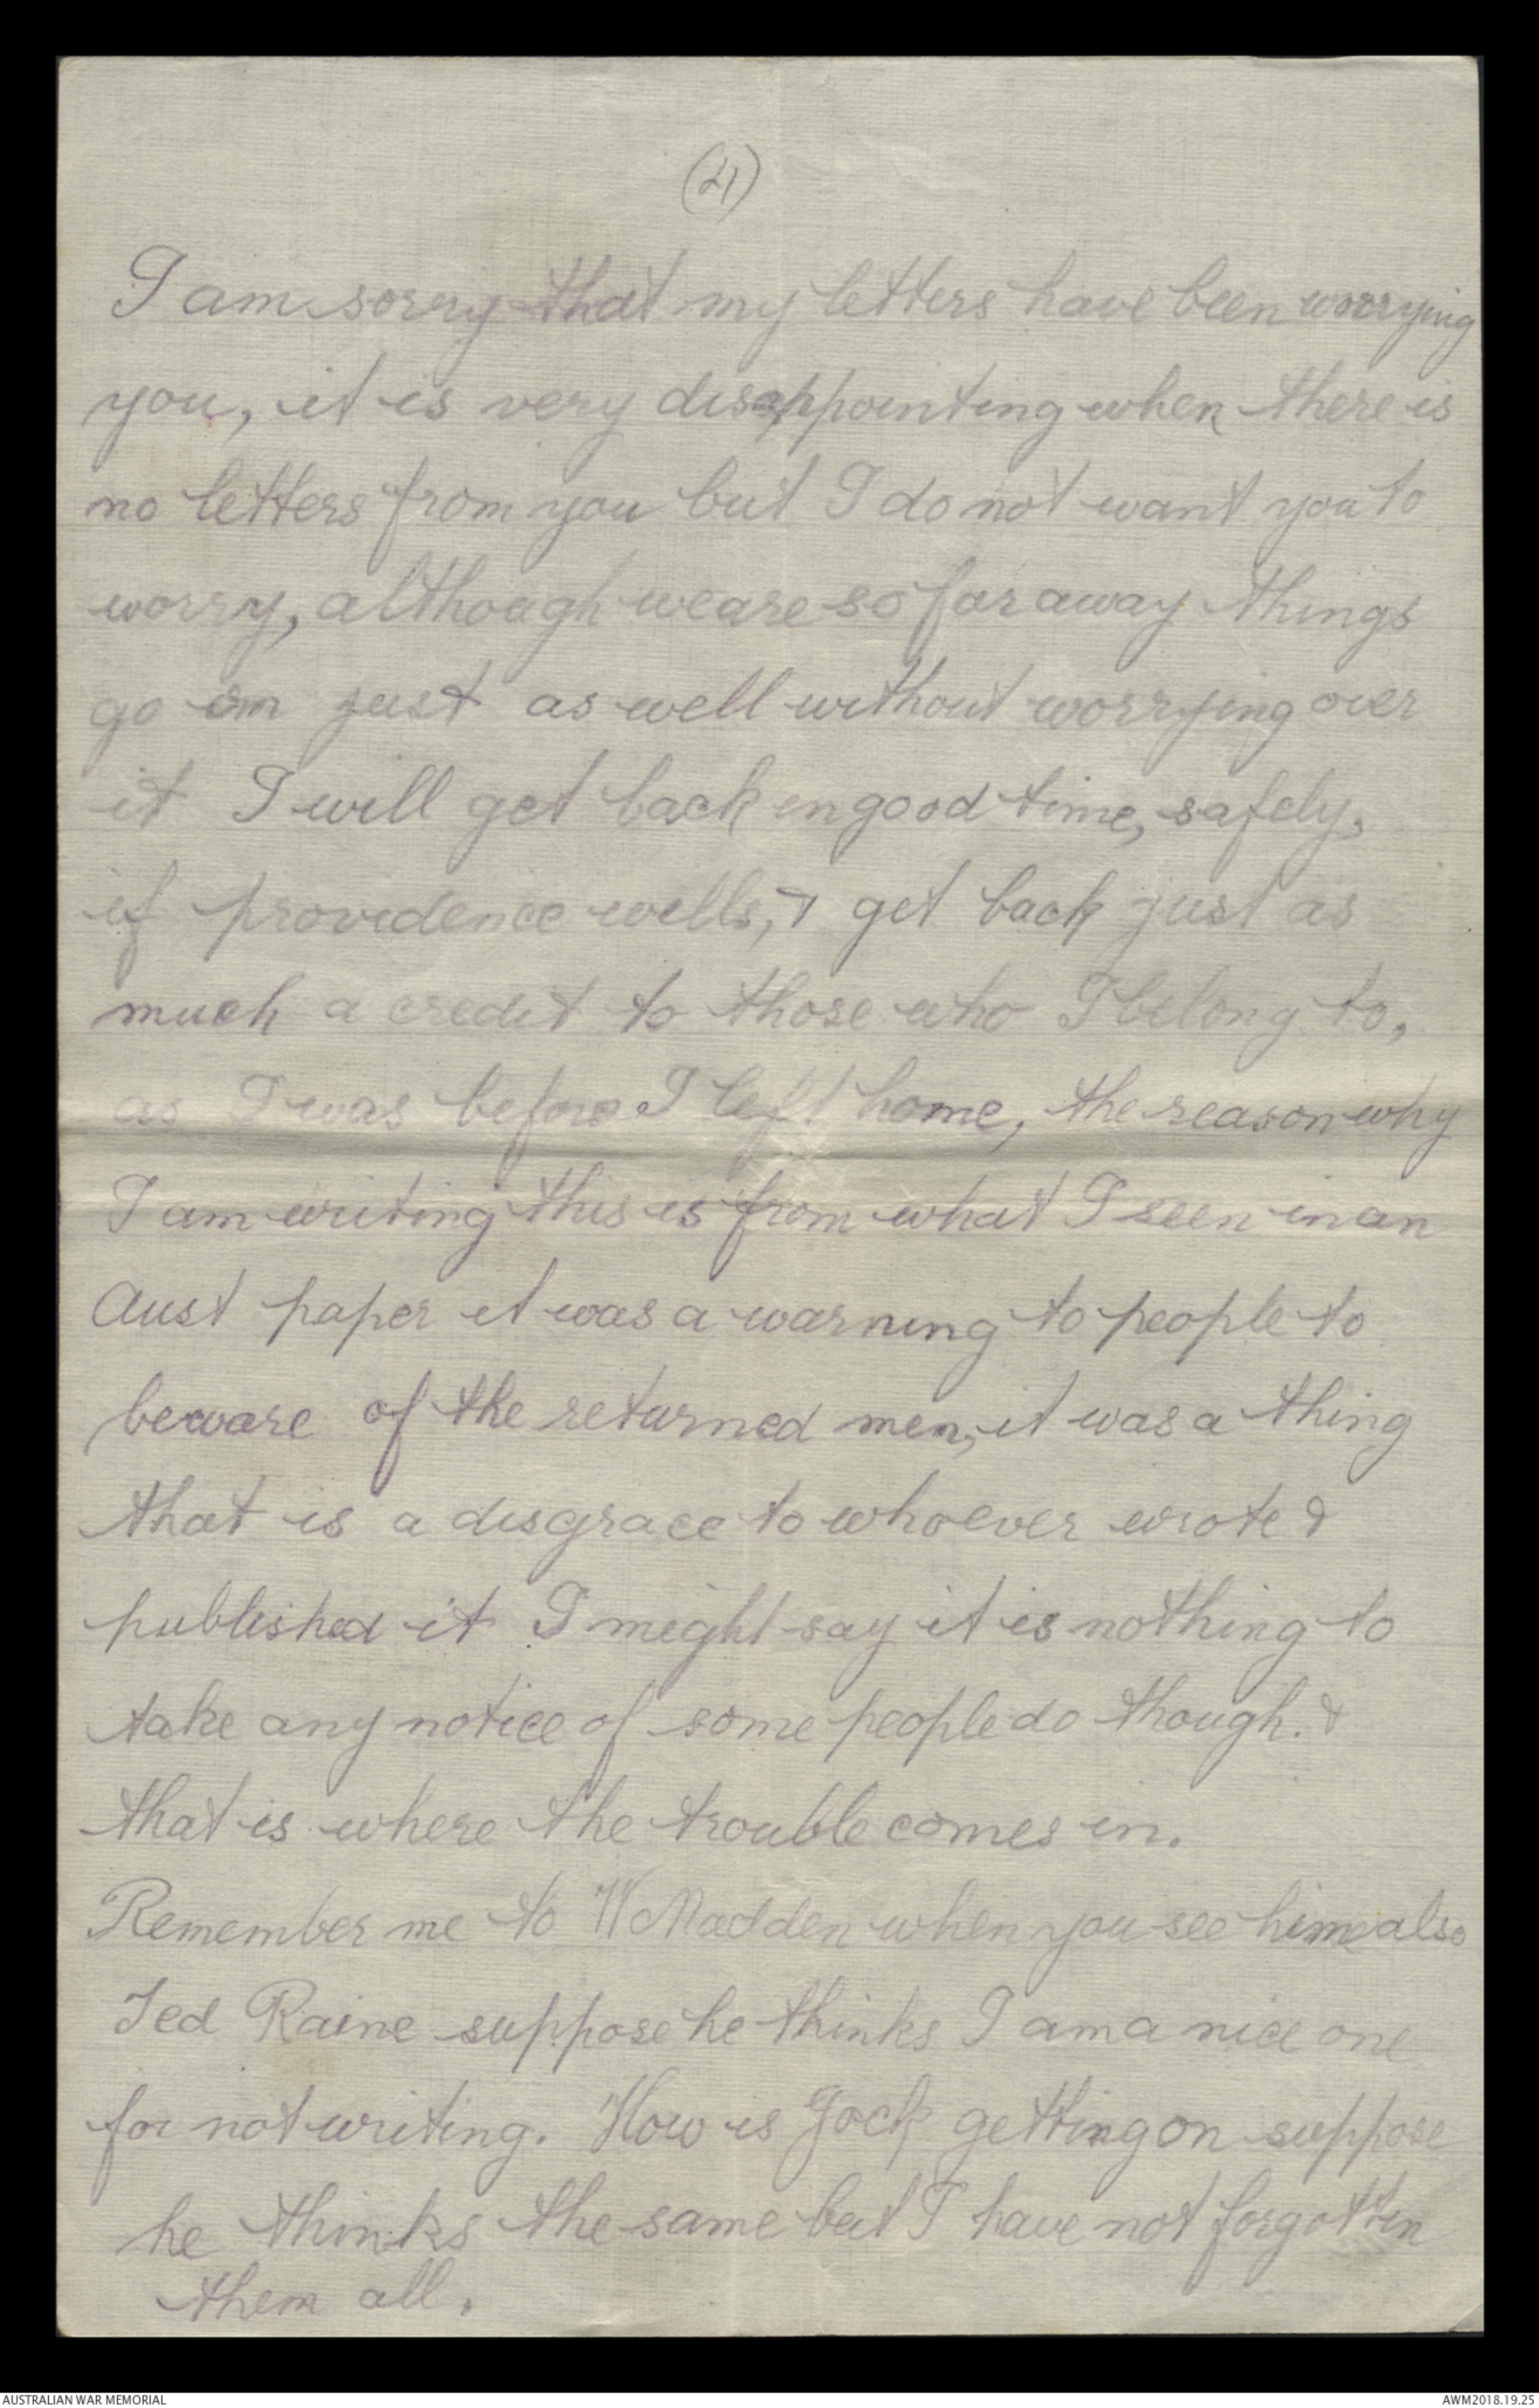 (4)
I am sorry that my letters have been worrying
you, it is very disappointing when there is
no letters from you but I do not want you to
worry, although we are so far away things
go on just as well without worrying over
it I will get back in good time, safely,
if providence wills, & get back just as
much a credit to those who I belong to,
as I was before I left home, the reason why
I am writing this is from what I seen in an
Aust paper it was a warning to people to
beware of the returned men, it was a thing
that is a disgrace to whoever wrote &
published it I might say it is nothing to
take any notice of some people do though. &
that is where the trouble comes in.
Remember me to W Madden when you see him also
Ted Raine suppose he thinks I am a nice one
for not writing. How is Jock getting on suppose
he thinks the same but I have not forgotten
them all.
AUSTRALIAN WAR MEMORIAL
AWM2018.19.25